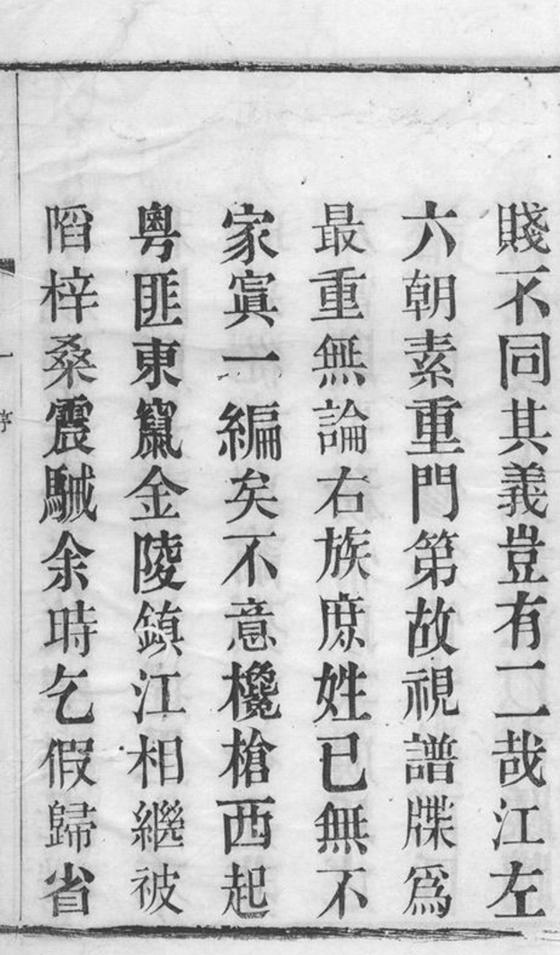 賤不同其義豈有二哉江左
六朝素重門第故視譜牒爲
最重無論右族庶姓已無不
家寘一編矣不意欃槍西起
粵匪東竄金陵鎮江相繼被
陷梓桑震駴余時乞假歸省
序